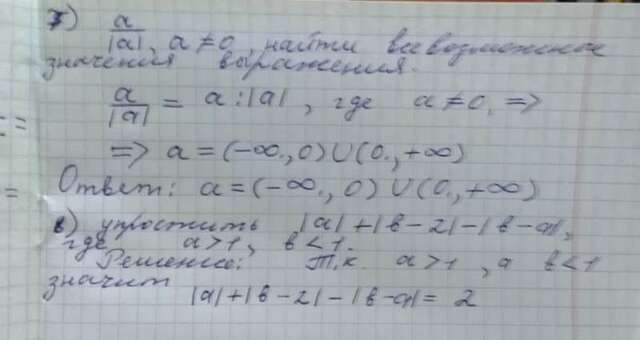 з) a/|a|, a ≠ 0, найти всевозможные
значения выражения.
a/|a| = a : |a|, где a ≠ 0, =>
=> a = (-∞, 0) U (0, +∞)
Ответ: a = (-∞, 0) U (0, +∞)
в) упростить |a| + |в - 2| - |в - a|,
где a > 1, в < 1.
Решение: Т.к. a > 1, а в < 1
значит
|a| + |в - 2| - |в - a| = 2